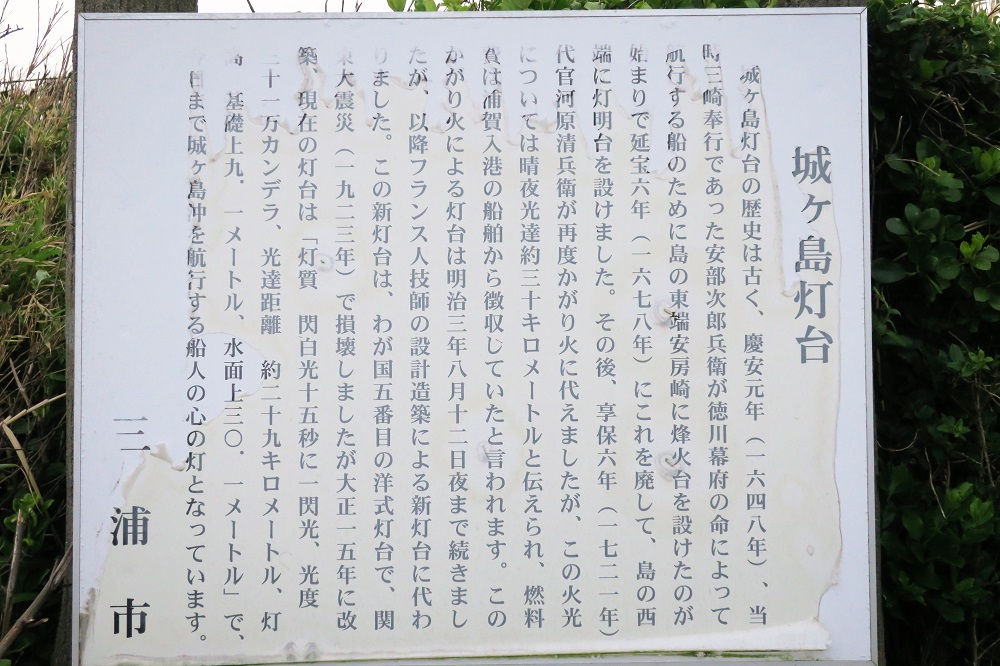 城ヶ島灯台
城ヶ島灯台の歴史は古く、慶安元年(一六四八年)、当
時三崎奉行であった安部次郎兵衛が徳川幕府の命によって
航行する船のために島の東端安房崎に烽火台を設けたのが
始まりで延宝六年(一六七八年)にこれを廃して、島の西
端に灯明台を設けました。その後、享保六年(一七二一年)
代官河原清兵衛が再度かがり火に代えましたが、この火光
については晴夜光達約三十キロメートルと伝えられ、燃料
費は浦賀入港の船舶から徴収していたと言われます。この
かがり火による灯台は明治三年八月十二日夜まで続きまし
たが、以降フランス人技師の設計造築による新灯台に代わ
りました。この新灯台は、わが国五番目の洋式灯台で、関
東大震災(一九二三年)で損壊しましたが大正一五年に改
築、現在の灯台は「灯質 閃白光十五秒に一閃光、光度
三十一万カンデラ、光達距離 約二十九キロメートル、灯
高 基礎上九.一メートル、水面上三〇.一メートル」で、
日まで城ヶ島沖を航行する船人の心の灯となっています。
三浦市